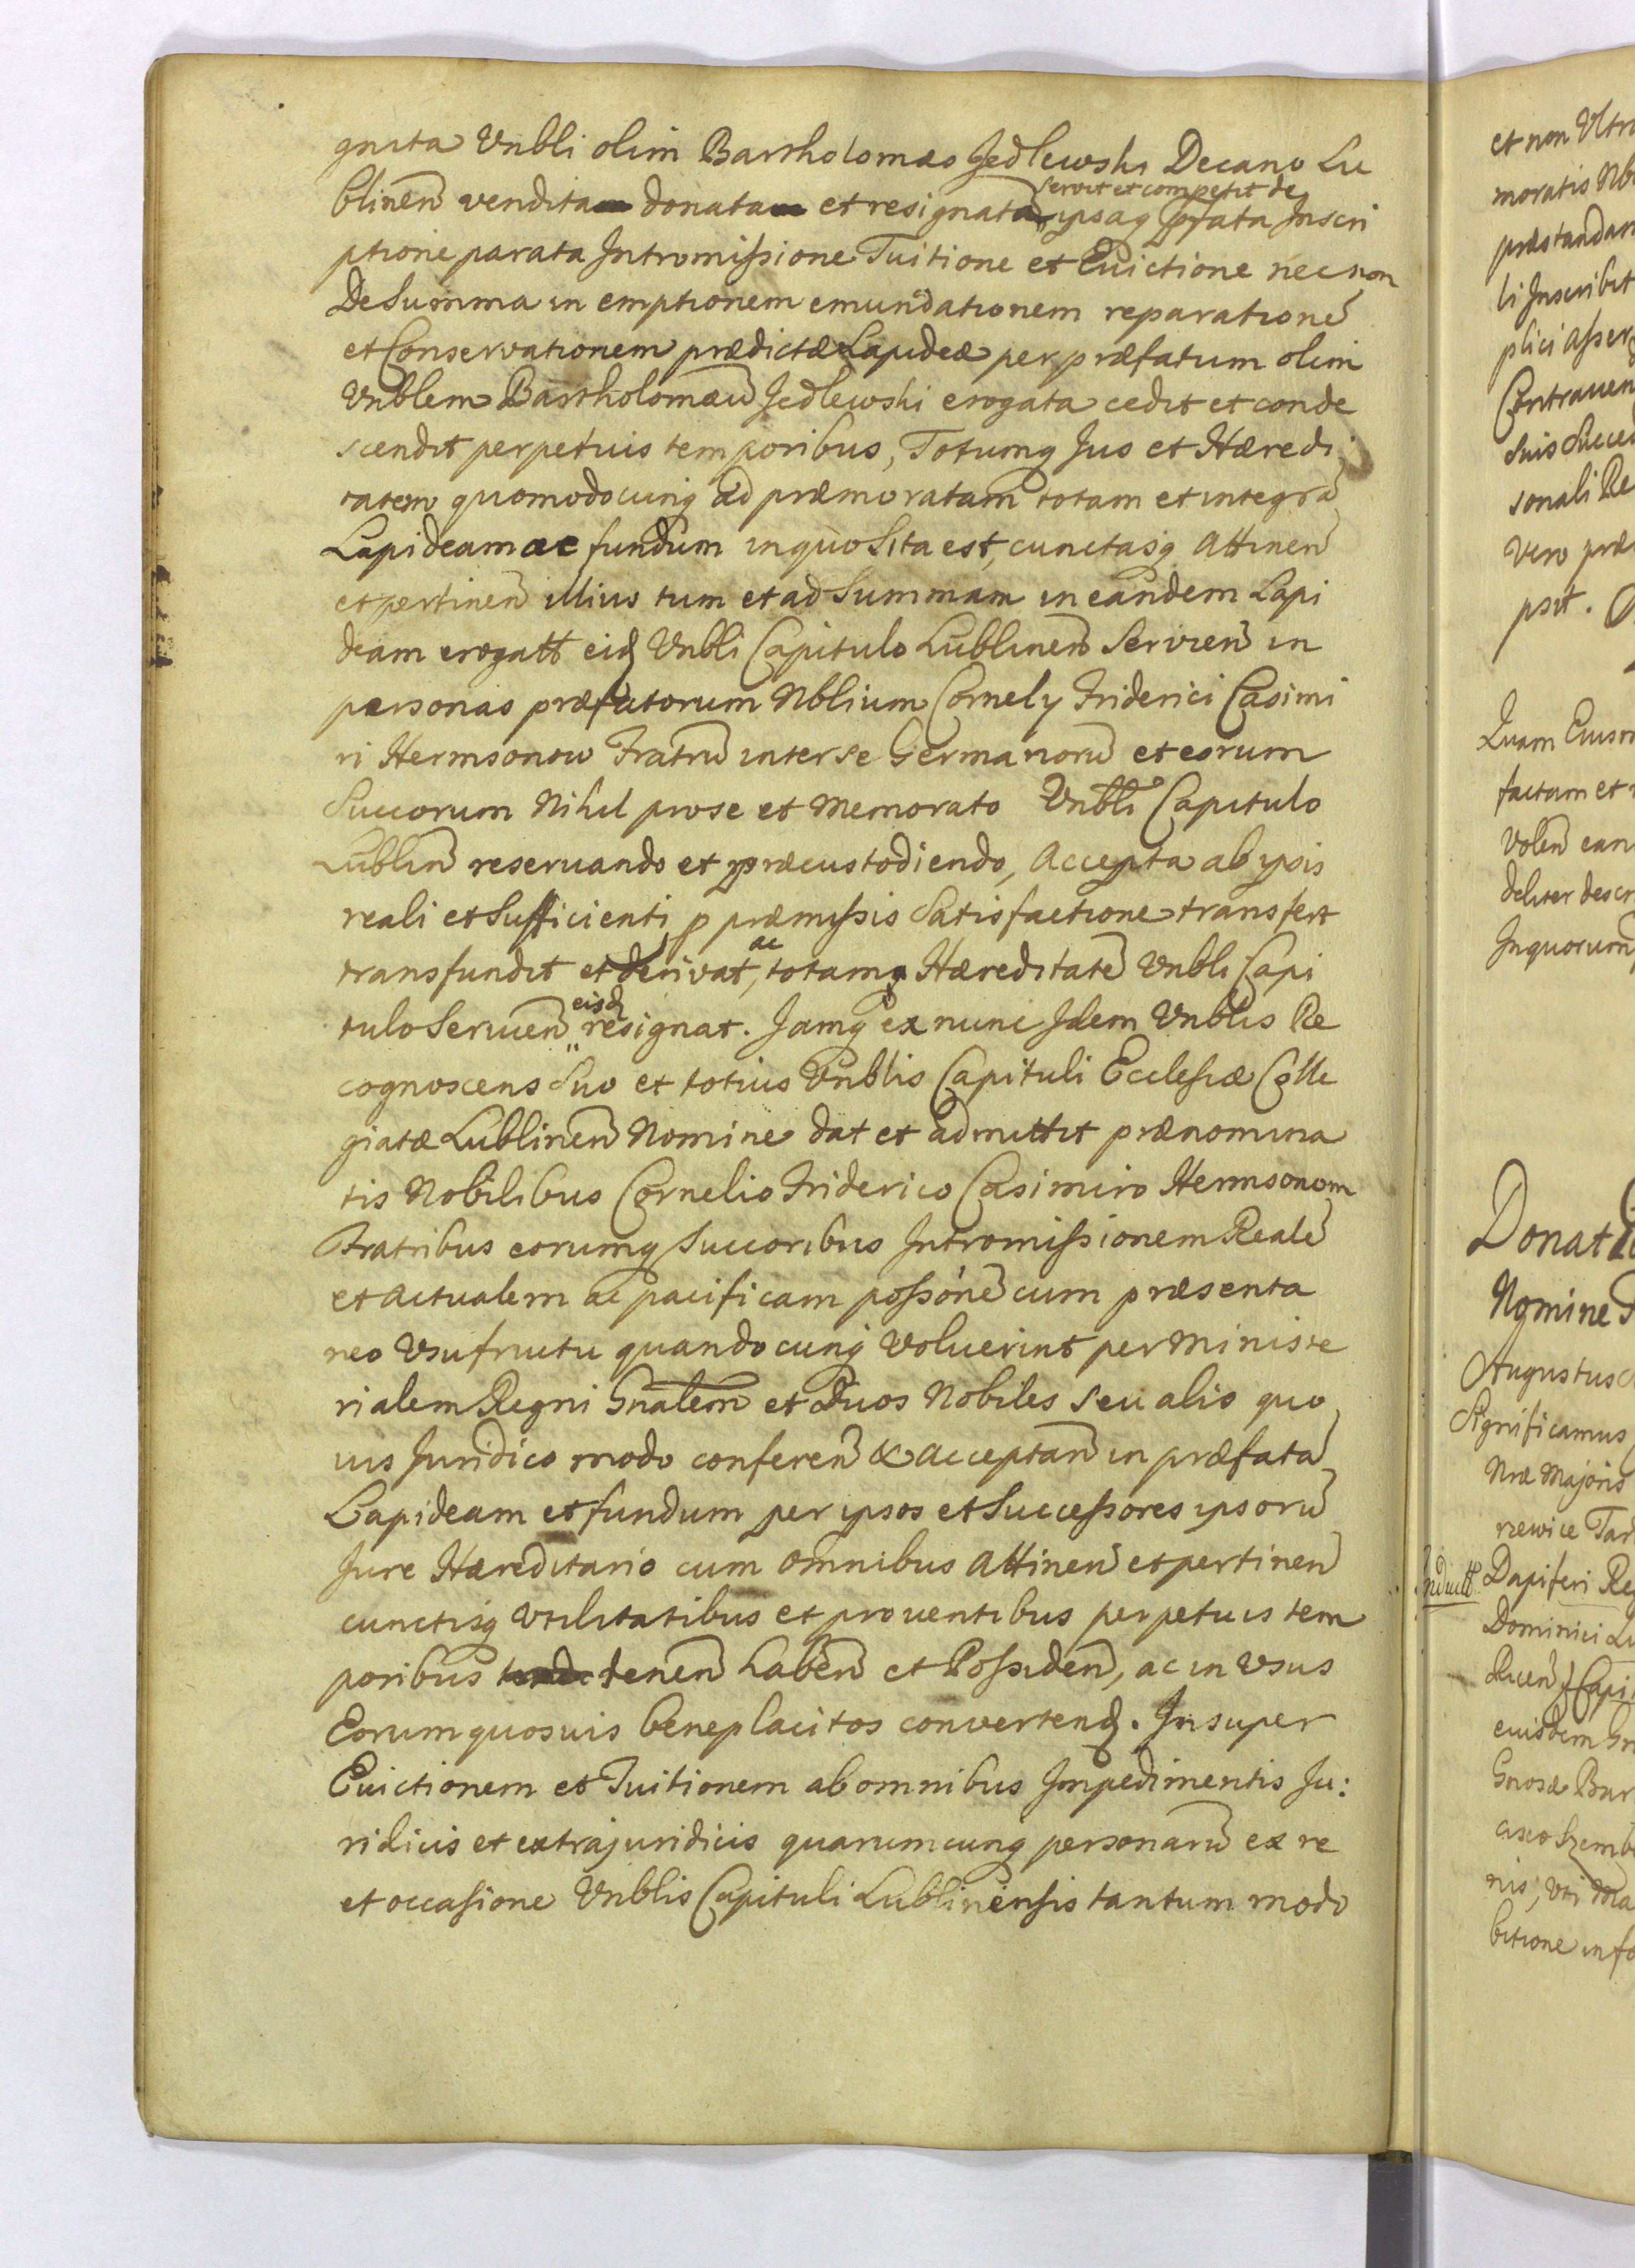 gnita Vnbli olim Bartholomæo Jedlewski Decano Lu
blinen̄ vendita donata et resignata servit et competit de ipsaq pfata Inscri
ptione parata Intromissione Tuitione et Euictione necnon
De Summa in emptionem emundationem reparationē
et Conservationem prædictæ Lapideæ per præfatum olim
Vnblem Bartholomæū Jedlewski erogata cedit et conde
scendit perpetuis temporibus, Totumq Jus et Hæredi
tatem quomodocunq ad præmoratam totam et integrā
Lapideam ac fundum in quo Sita est, cunctasq Attinen̄
et pertinen̄ illius tum et ad Summam in eandem Lapi
deam erogatt eid Vnbli Capitulo Lublinen̄ Servien̄ in
personas præfatorum Nblium Cornely Friderici Casimi
ri Hermsonow Fratrū inter se Germanorū et eorum
Succorum Nihil pro se et Memorato Vnbli Capitulo
Lublin̄ reseruando et præcustodiendo, Accepta ab ipsis
reali et Sufficienti p præmissis Satisfactione transfert
transfundit et derivat, ac totamq Hæreditatē Vnbli Capi
tulo Seruien̄ eisd resignat. Jamq ex nunc Idem Vnblis Re
cognoscens Suo et totius Vnblis Capituli Ecclesiæ Colle
giatæ Lublinen̄ Nomine dat et admittit prænomina
tis Nobilibus Cornelio Friderico Casimiro Hermsonom
Fratribus eorumq Succoribus Intromissionem Realē
et Actualem ac pacificam possonē cum præsenta
neo Vsufructu quandocunq Voluerint per Ministe
rialem Regni Gnalem et Duos Nobiles seu alio quo
uis Juridico modo conferen̄ & acceptan̄ in præfatā
Lapideam et fundum per ipsos et Successores ipsorū
Jure Hæreditario cum omnibus Attinen̄ et pertinen̄
cunctisq Vtilitatibus et prouentibus perpetuis tem
poribus tenen̄ haben̄ et Possiden̄, ac in Vsus
Eorum quosuis beneplacitos convertend. Insuper
Euictionem et Tuitionem ab omnibus Impedimentis Ju:
ridicis et extrajuridicis quarumcunq personarū ex re
et occasione Vnblis Capituli Lublinensis tantum modo
et non Vltra
moratis Nb
præstandam
li Inscribit
plici Asser
Contrauen
Suis Succed
sonali Re
Vero præ
psit.
Quam Eius
factam et
Volen̄ ean
deliter descr
Inquorum
Donat
Nomine
Augustus
Significamus
Nræ Majoris
rzewice Tar
Induct
Dapiferi Re
Dominici Lu
Capi
eiusdem Gn
Gnosæ Bar
Szemb
nis, Vti Ma
bitione in fo